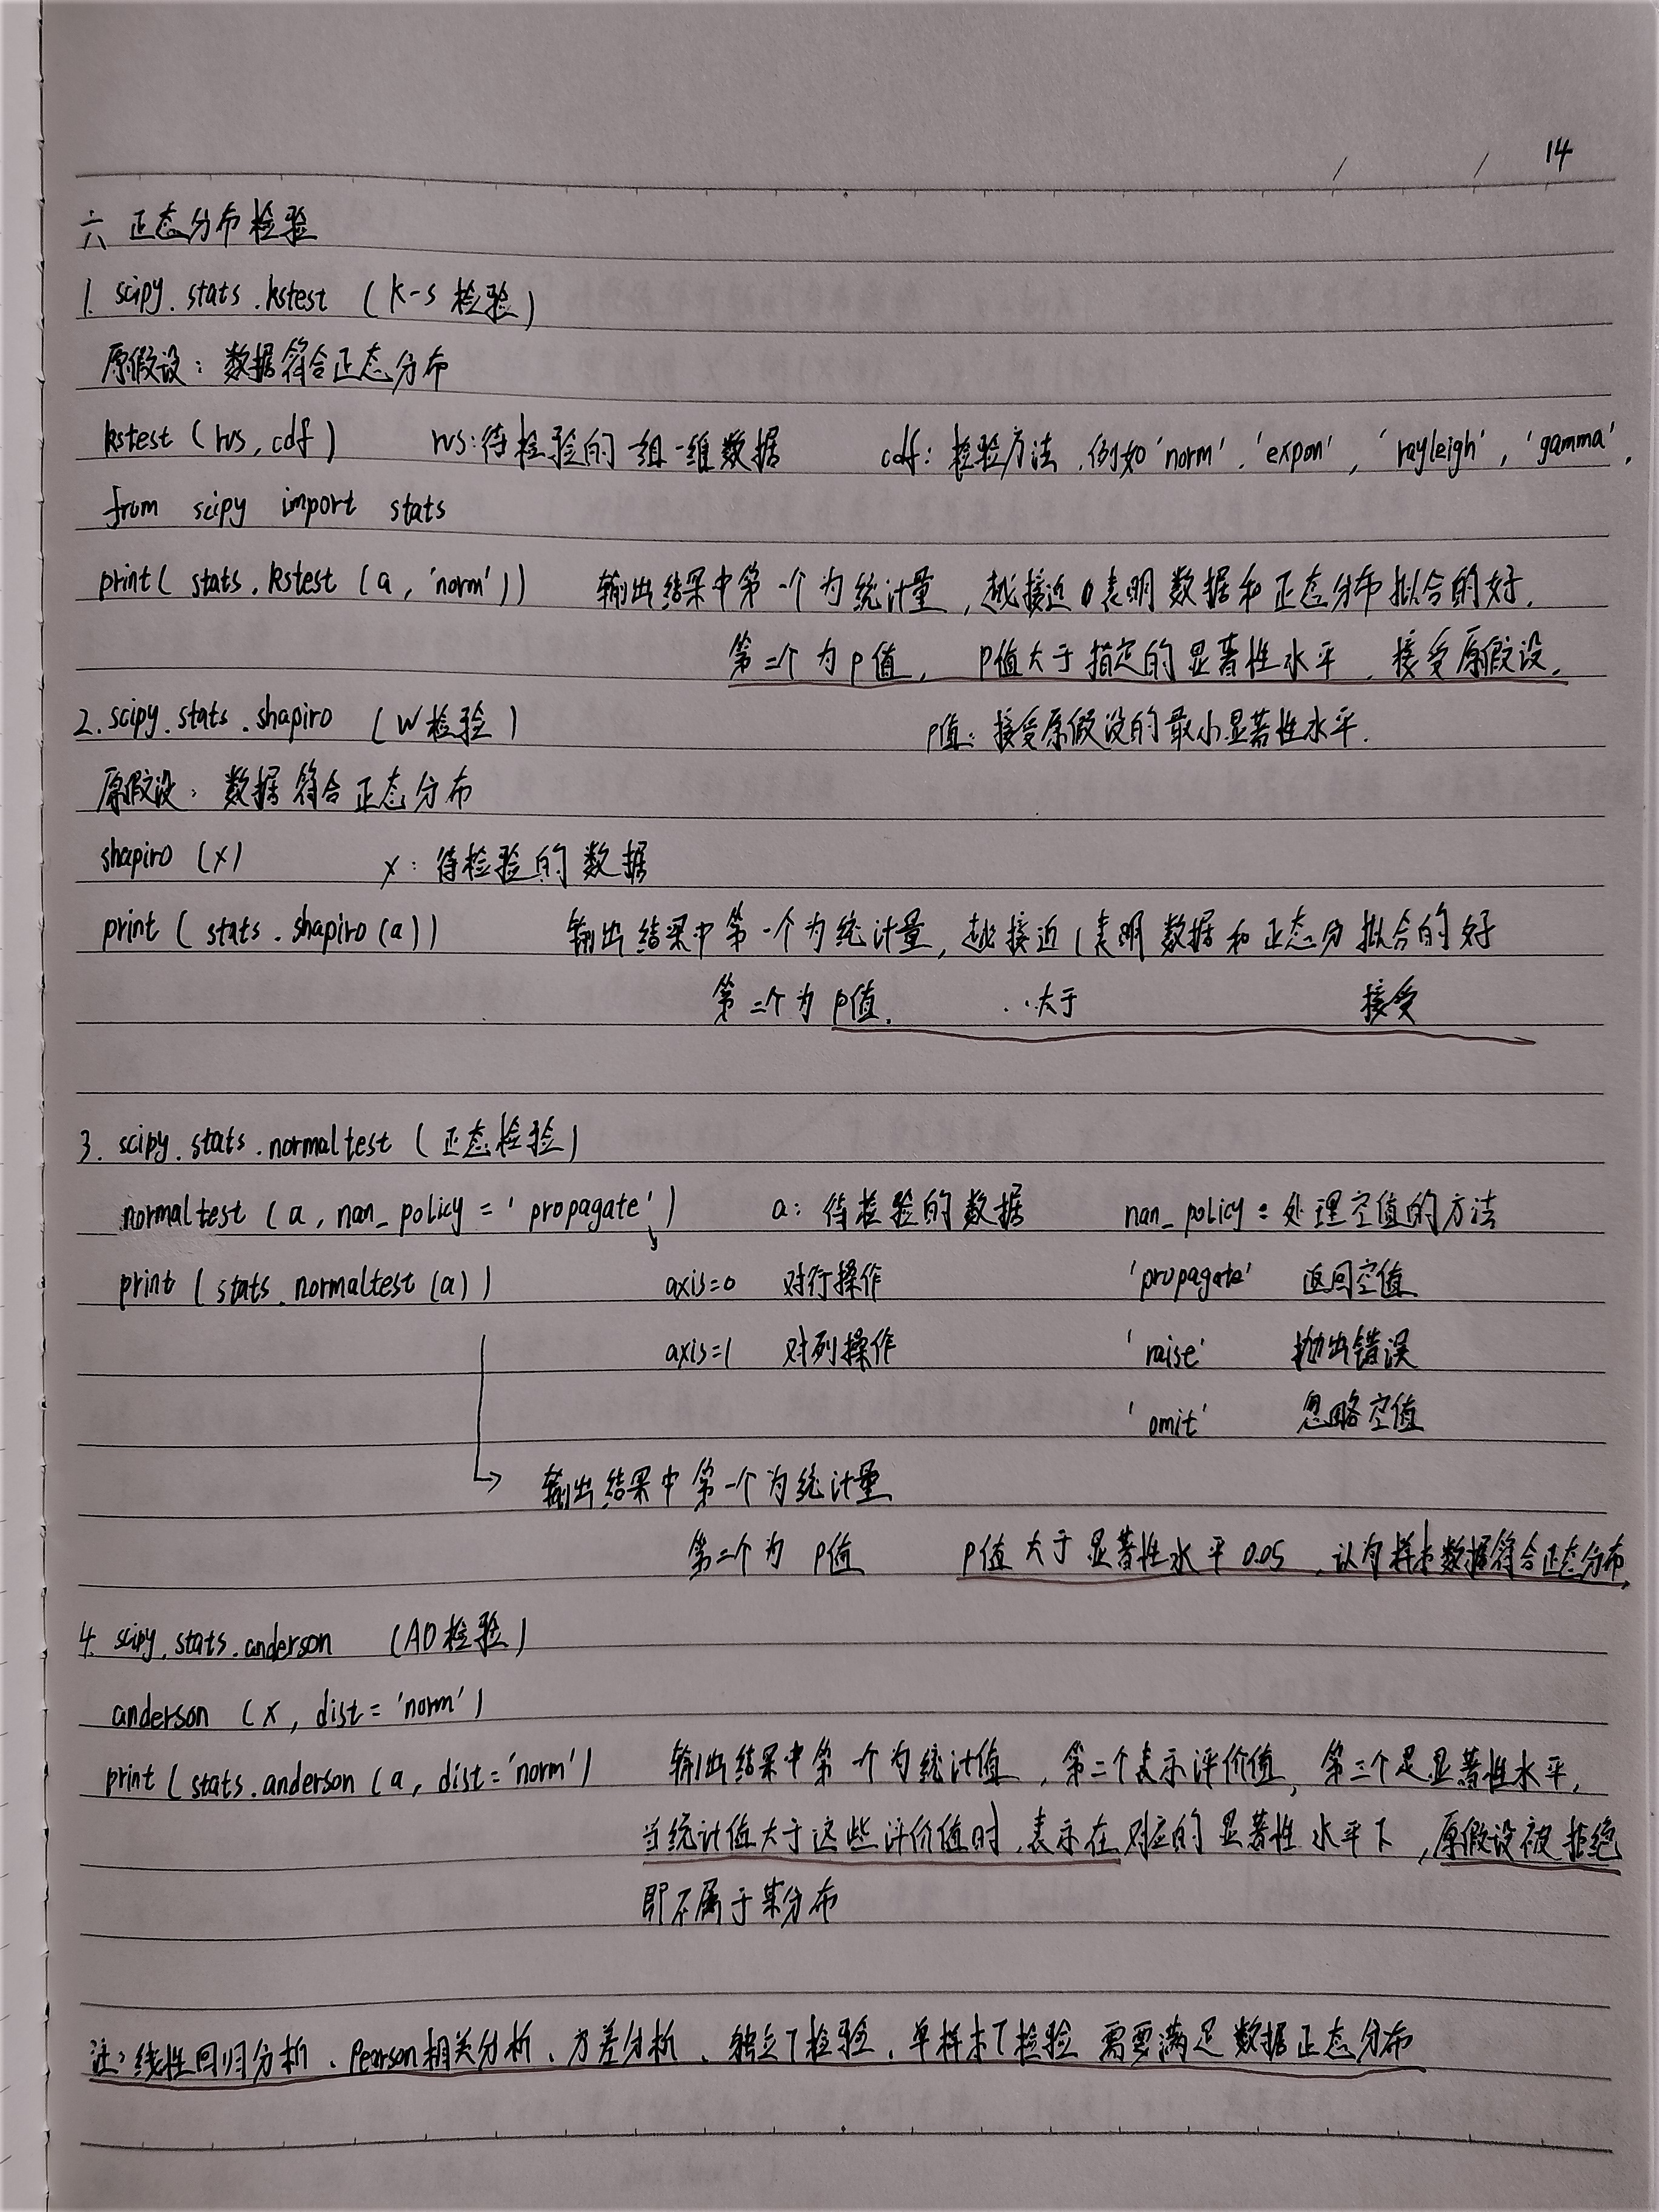 14
六 正态分布检验
1. scipy.stats.kstest (k-s检验)
原假设：数据符合正态分布
kstest (rvs, cdf) rvs:待检验的一组一维数据 cdf: 检验方法，例如'norm', 'expon', 'rayleigh', 'gamma',
from scipy import stats
print( stats.kstest (a, 'norm')) 输出结果中第一个为统计量，越接近0表明数据和正态分布拟合的好.
第二个为p值， P值大于指定的显著性水平，接受原假设.
2. scipy.stats.shapiro (W检验) P值：接受原假设的最小显著性水平.
原假设：数据符合正态分布
shapiro (x) x：待检验的数据
print ( stats.shapiro (a)) 输出结果中第一个为统计量，越接近1表明数据和正态分拟合的好
第二个为p值. 大于 接受
3. scipy.stats.normaltest (正态检验)
normaltest (a, nan_policy='propagate') a：待检验的数据 nan_policy：处理空值的方法
print (stats.normaltest (a)) axis=0 对行操作 'propagate' 返回空值
axis=1 对列操作 'raise' 抛出错误
'omit' 忽略空值
输出结果中第一个为统计量
第二个为 p值 P值大于显著性水平0.05，认为样本数据符合正态分布.
4. scipy.stats.anderson (AD检验)
anderson (x, dist='norm')
print (stats.anderson (a, dist='norm') 输出结果中第一个为统计值，第二个表示评价值，第三个是显著性水平，
当统计值大于这些评价值时，表示在对应的显著性水平下，原假设被拒绝
即不属于某分布
注：线性回归分析、Pearson相关分析、方差分析、独立T检验、单样本T检验 需要满足数据正态分布